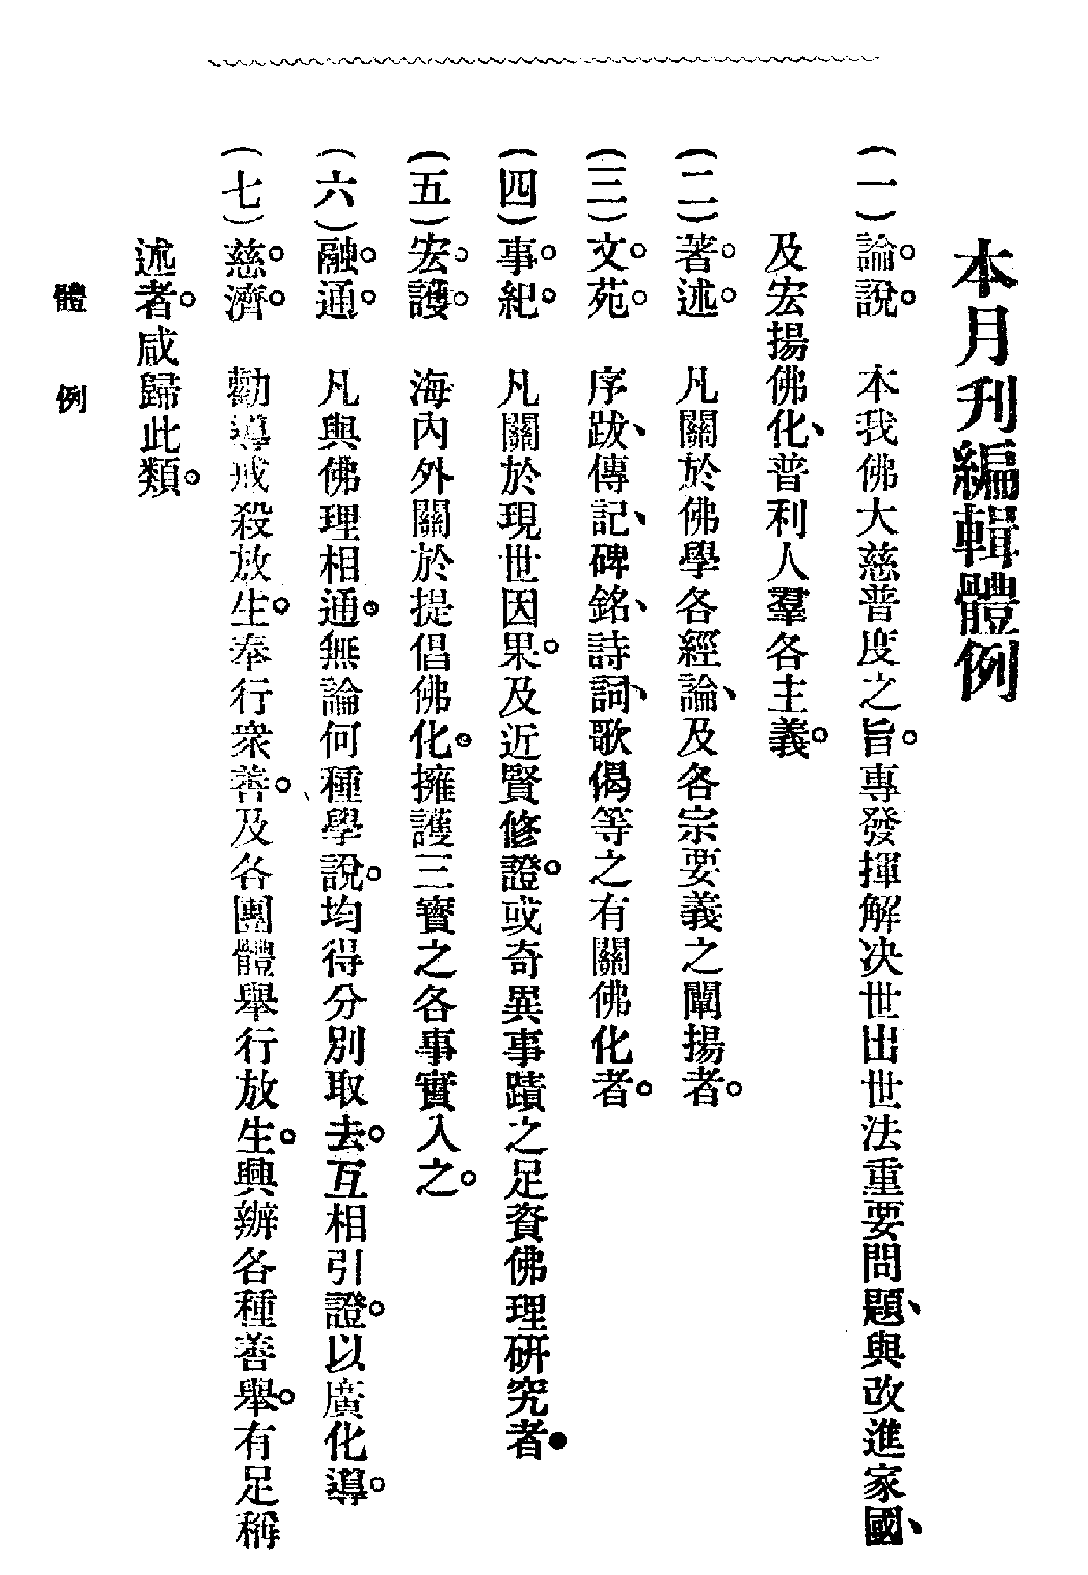 本月刋編輯體例
(一)論。說。　本我佛大慈普度之旨。專發揮解決世出世法重要問題、與改進家國、
及宏揚佛化、普利人羣各主義。
(二)著。述。　凡關於佛學各經論、及各宗要義之闡揚者。
(三)文。苑。　序跋、傳記、碑銘、詩詞、歌偈等之有關佛化者。
(四)事。紀。　凡關於現世因果。及近賢修證。或奇異事蹟之足資佛理研究者。
(五)宏。護。　海內外關於提倡佛化。擁護三寶之各事實入之。
(六)融。通。　凡與佛理相通。無論何種學說。均得分別取去。互相引證。以廣化導。
(七)慈。濟。　勸導戒殺放生。奉行衆善。及各團體舉行放生。興辦各種善舉。有足稱
述者。咸歸此類。
體　例